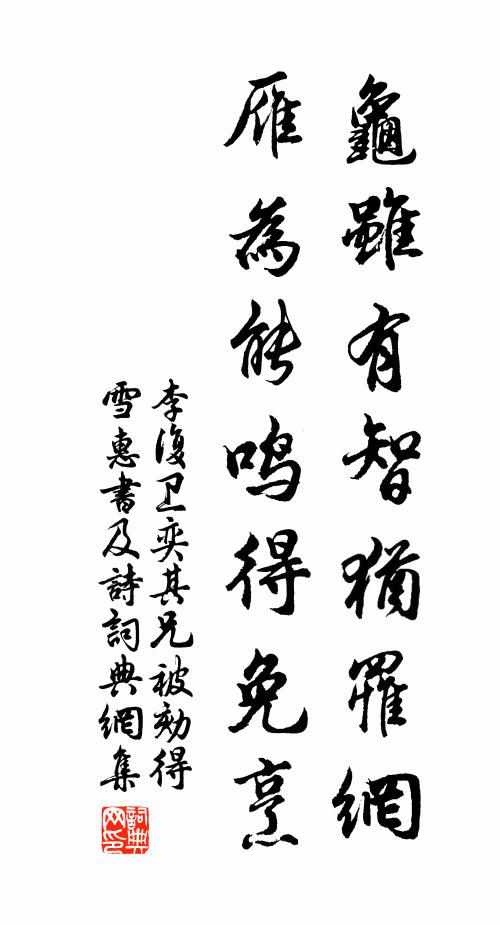 龜雖有智猶罹網
雁為能鳴得免烹
李復卫奕其兄被劾得
雪惠書及詩詞典網集
詞典网印